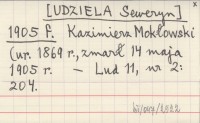 [UDZIELA Seweryn]
1905 P. Kazimierz Mokłowski
(ur. 1869 r., zmarł 14 maja
1905 r. — Lud 11, nr 2:
204.